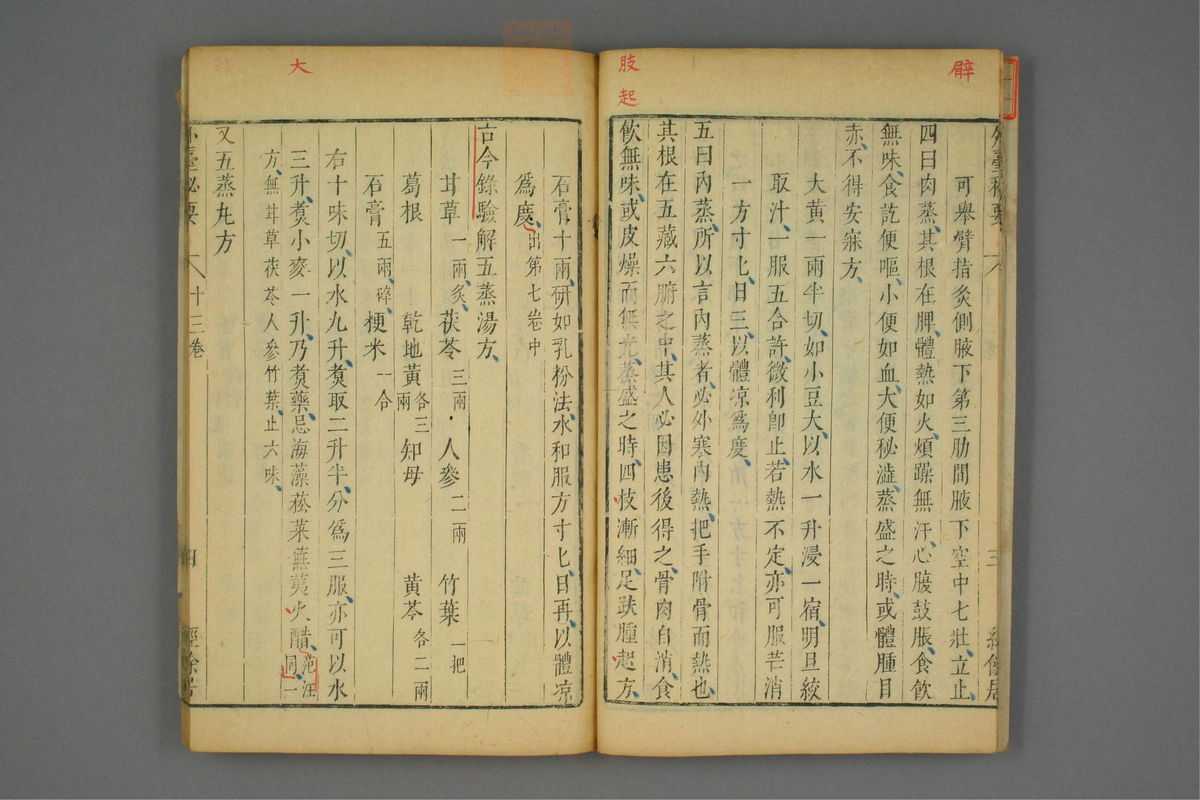 臂
肢
起
大
可舉臂指灸側腋下第三肋間腋下空中七壯立止
四曰肉蒸其根在脾體熱如火煩躁無汗心腹鼓脹食飲
無味食訖便嘔小便如血大便秘澁蒸盛之時或體腫目
赤不得安寐方
大黃一兩半切如小豆大以水一升浸一宿明旦絞
取汁一服五合許微利卽止若熱不定亦可服芒消
一方寸匕日三以體凉爲度
五曰內蒸所以言內蒸者必外寒內熱把手附骨而熱也
其根在五藏六腑之中其人必因患後得之骨肉自消食
飲無味或皮燥而無光蒸盛之時四枝漸細足趺腫起方
石膏十兩研如乳粉法水和服方寸匕日再以體凉
爲度出第七卷中
古今錄驗解五蒸湯方
甘草一兩炙 茯苓三兩 人參二兩 竹葉一把
葛根 乾地黃各三兩 知母 黃芩各二兩
石膏五兩碎 粳米一合
右十味切以水九升煑取二升半分爲三服亦可以水
三升煑小麥一升乃煑藥忌海藻菘菜蕪荑火醋范汪同一
方無甘草茯苓人參竹葉止六味
又五蒸丸方
外臺祕要 十三卷 四 經餘居